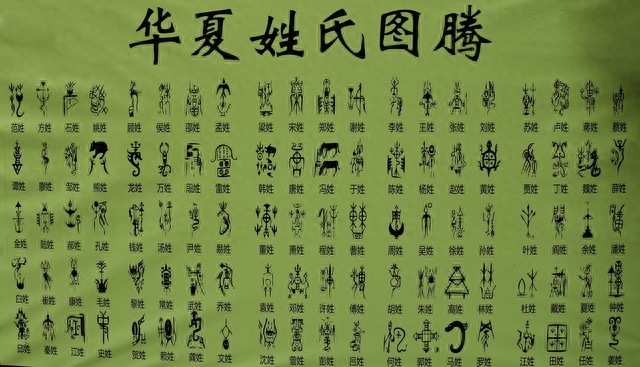 华夏姓氏图腾
范姓 方姓 石姓 姚姓 顾姓 侯姓 邵姓 孟姓 梁姓 宋姓 郑姓 谢姓 李姓 王姓 张姓 刘姓 苏姓 卢姓 蒋姓 蔡姓
谭姓 廖姓 邹姓 熊姓 龙姓 万姓 雷姓 韩姓 唐姓 冯姓 于姓 陈姓 杨姓 赵姓 黄姓 贾姓 丁姓 魏姓 薛姓
金姓 陆姓 郝姓 孔姓 钱姓 汤姓 尹姓 易姓 董姓 萧姓 程姓 曹姓 周姓 吴姓 徐姓 孙姓 叶姓 阎姓 余姓 潘姓
白姓 崔姓 康姓 毛姓 黎姓 常姓 武姓 乔姓 袁姓 邓姓 许姓 傅姓 胡姓 朱姓 高姓 林姓 杜姓 戴姓 夏姓 钟姓
邱姓 秦姓 江姓 史姓 贺姓 赖姓 龚姓 文姓 沈姓 曾姓 彭姓 吕姓 何姓 郭姓 马姓 罗姓 汪姓 田姓 任姓 姜姓